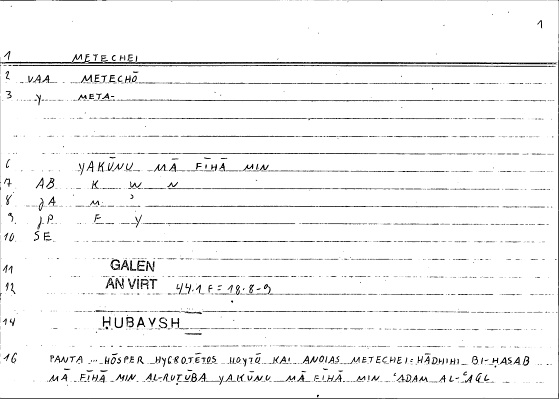 1
1 METECHEI
2 VAA METECHŌ
3 Y META-
6 YAKŪNU MĀ FĪHĀ MIN
7 AB K W N
8 JA M ʾ
9 JP F Y
10 SE
11 GALEN
12 AN VIRT 44.1 F = 18.8-9
14 HUBAYSH
16 PANTA ... HŌSPER HYGROTĒTOS HOYTŌ KAI ANOIAS METECHEI: HĀDHIHI BI-ḤASAB
MĀ FĪHĀ MIN AL-RUṬŪBA YAKŪNU MĀ FĪHĀ MIN ʿADAM AL-ʿAQL